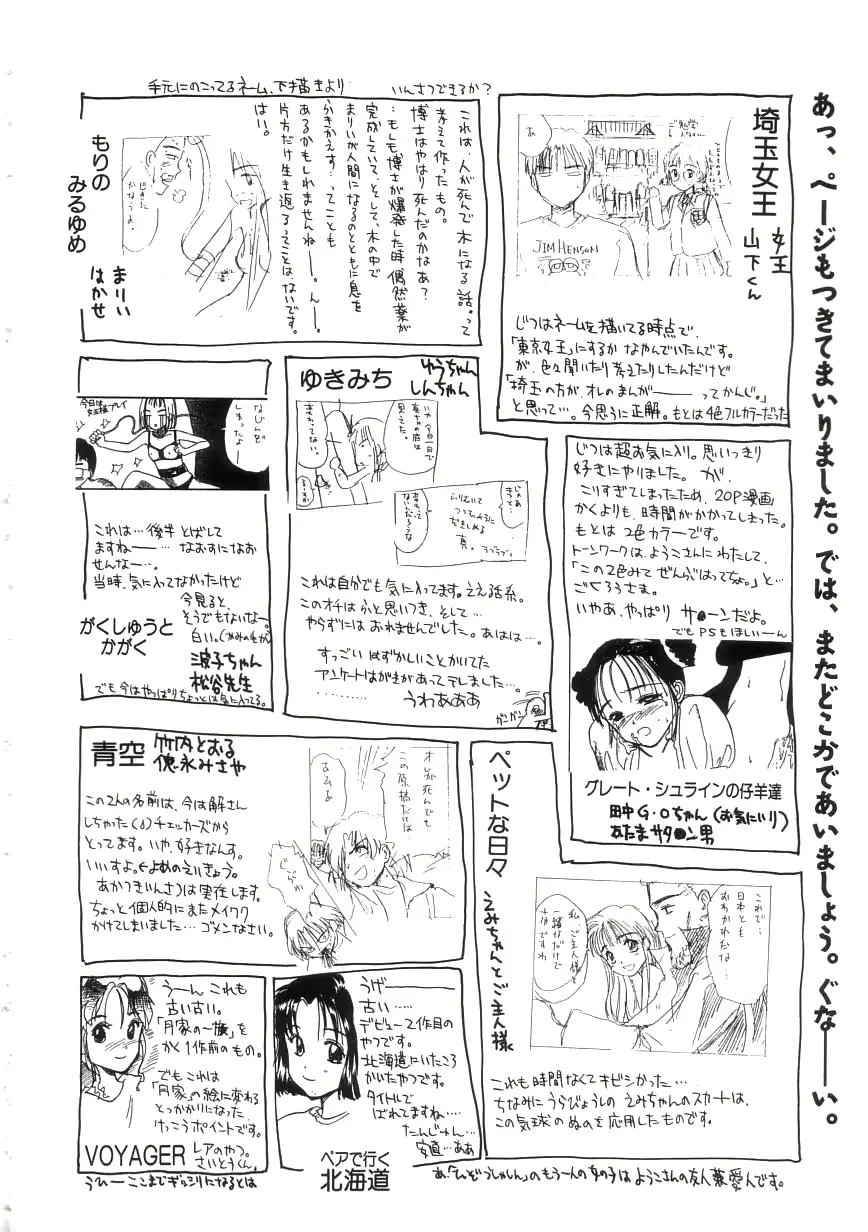 あっ、ページもつきてまいりました。では、またどこかであいましょう。ぐなーーい。
手元にのこってるネーム、下描きより
いんさつできるか?
埼玉女王
女王
山下くん
あ
JIM HENSON
じつはネームを描いてる時点で、
「東京女王」にするか なやんでいたんです。
が、色々聞いたり考えたりしたんだけど
「埼玉の方が、オレのまんがーーー ってかんじ。」
と思って…。今思うに正解。もとは4色フルカラーだった
これは、人が死んで木になる話。って
考えて作ったもの。
博士はやはり死んだのかなあ?
…もしも博士が爆発した時 偶然薬が
完成していて、そして、木の中で
まりいが人間になるのとともに息を
ふきかえす?ってことも
あるかもしれませんねー。んー。
片方だけ生き返るってことは、ないです。
はい。
もりの
みるゆめ
まりい
はかせ
じつは超お気に入り。思いっきり
好きにやりました。が、
こりすぎてしまったため、20P漫画
かくよりも、時間がかかってしまった。
もとは2色カラーです。
トーンワークは、ようこさんにわたして、
「この2色みて ぜんぶはってちょ。」と…
ごくろうさま。
いやあ、やっぱり サ●ーンだよ。
でもPSもほしいーん
グレート・シュラインの仔羊達
田中G・Oちゃん(お気にいり)
あたまサタ●ン男
ゆきみち
ゆうちゃん
しんちゃん
いや 今日一日で
見えてた。
変わってない。
じゃあ
きっと…
これは自分でも気に入ってます。ええ話系。
このオチは ふと思いつき、そして…
やらずには おれませんでした。あははは…。
すっごい はずかしいことかいてた
アンケートはがきがあってテレました…。
うわあああ
ガンガン
今日は
女王様プレイ
なじんど
しまったよ
これは…後半 とばして
ますねー…なおすになお
せんなー…。
当時、気に入ってなかったけど
今見ると、
そうでもないなー。
白い。(がみの毛が)
がくしゅうと
かがく
波子ちゃん
松谷先生
でも今はやっぱりちょっとは気に入ってる。
青空
竹内とおる
徳永みさや
この2人の名前は、今は解さん
しちゃった(6)チェッカーズから
とってます。いや、好きなんす。
いいすよ。(←よめのえいきょう。
あかつきいんさつは実在します。
ちょっと個人的にまたメイワク
かけてしまいました… ゴメンなさい。
オレが死んでも
この原稿だけは…
ペットな日々
えみちゃんとご主人様
これで…
日本とも
おわかれだな…
私、ご主人様と
一緒だけで
幸せですわ
これも時間なくてキビシかった…
ちなみにうらびょうしの えみちゃんのスカートは、
この気球のぬのを応用したものです。
うーん これも
古い古い。
「月家の一族」を
かく1作前のもの。
でもこれは
「月家」の絵に変わる
とっかかりになった、
けっこうポイントです。
VOYAGER
レアのやつ。
さいとうくん。
うひーここまでぎっシリになるとは
うげーー
古い……
デビュー2作目の
やつです。
北海道にいたころ
かいたやつです。
タイトルで
ばれてますね…
たんじゅん…
安直…ああ
ペアで行く
北海道
あ、「ひんぞうしゃしん」のもう一人の女の子は ようこさんの友人兼愛人です。